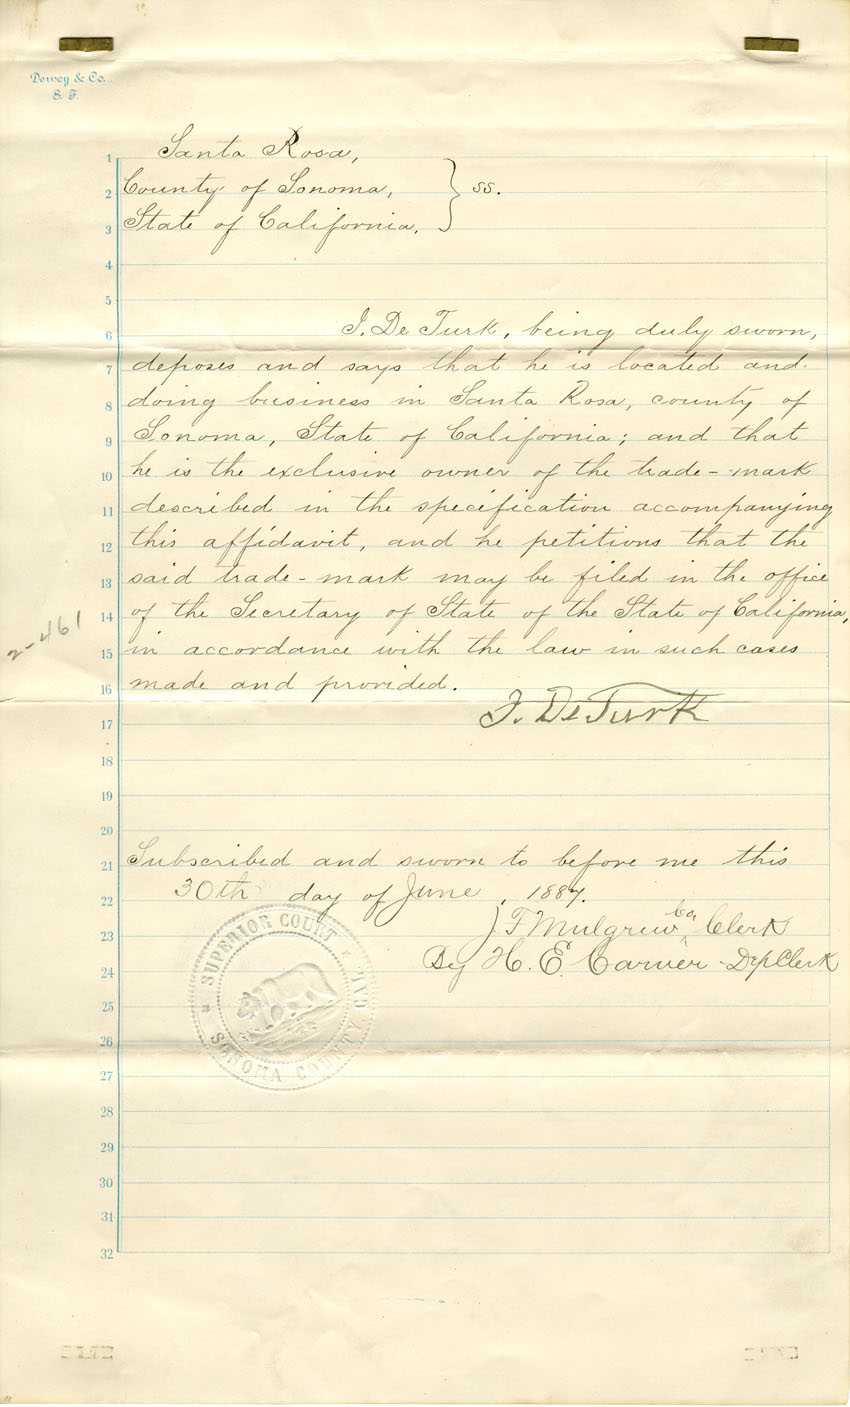 Dewey & Co.
S. F.
1 Santa Rosa,
2 County of Sonoma, } ss.
3 State of California,
4
5
6 I. De Turk, being duly sworn,
7 deposes and says that he is located and
8 doing business in Santa Rosa, county of
9 Sonoma, State of California; and that
10 he is the exclusive owner of the trade-mark
11 described in the specification accompanying
12 this affidavit, and he petitions that the
13 said trade-mark may be filed in the office
14 of the Secretary of State of the State of California,
2-461
15 in accordance with the law in such cases
16 made and provided.
17 I. De Turk
18
19
20
21 Subscribed and sworn to before me this
22 30th day of June, 1887.
23 J F Mulgrew Co Clerk
24 By H. E. Dep Clerk
SUPERIOR COURT
SONOMA COUNTY, CAL
25
26
27
28
29
30
31
32